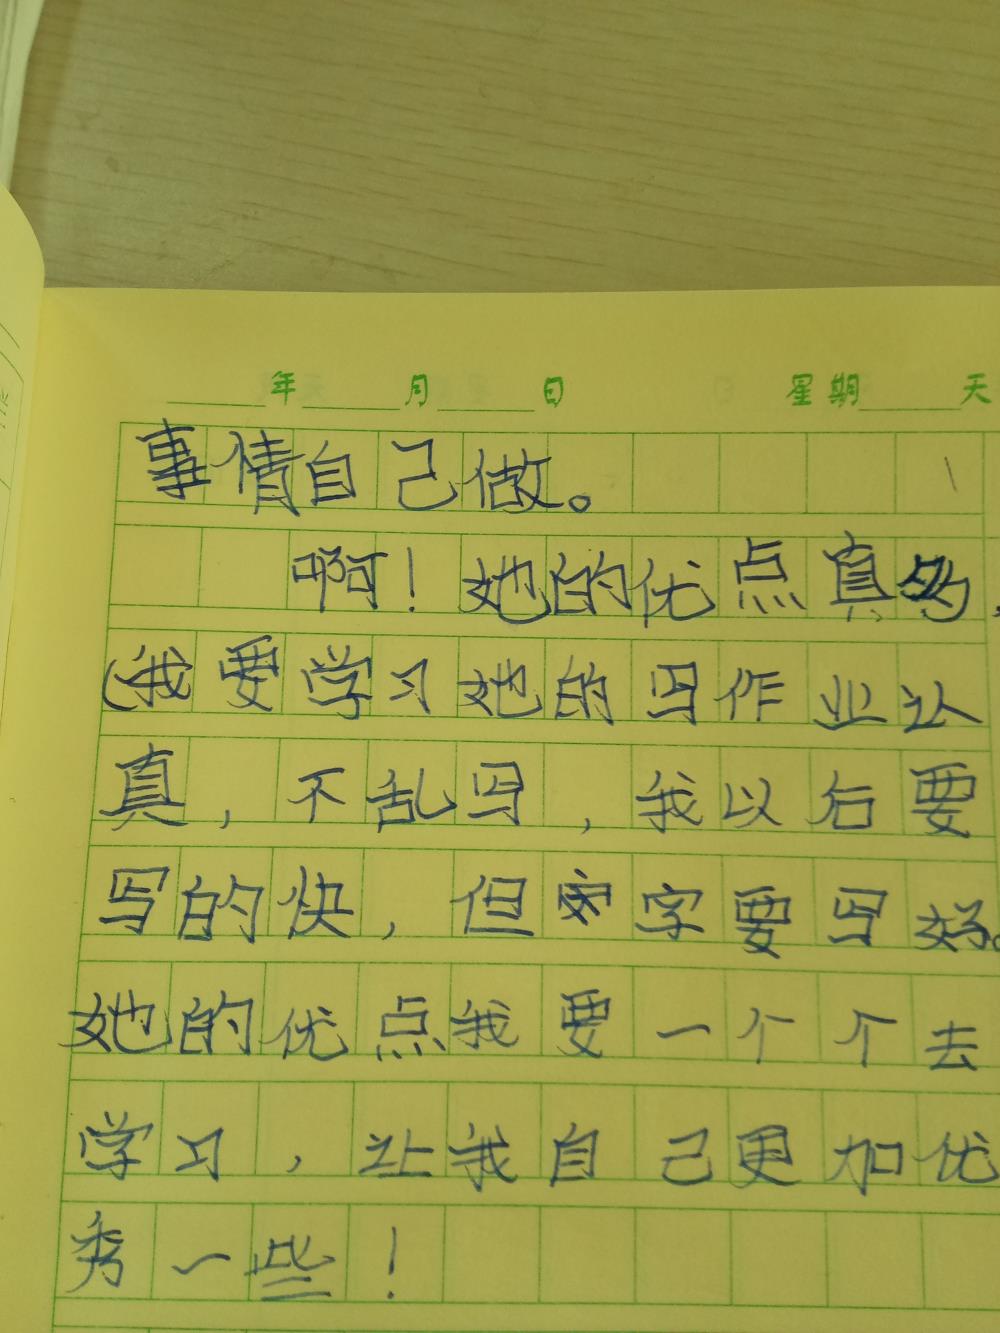 年 月 日 星期 天
事情自己做。
啊！她的优点真多，
(我要学习她的写作业认
真，不乱写，我以后要
写的快，但字要写好。
她的优点我要一个个去
学习，让我自己更加优
秀一些！